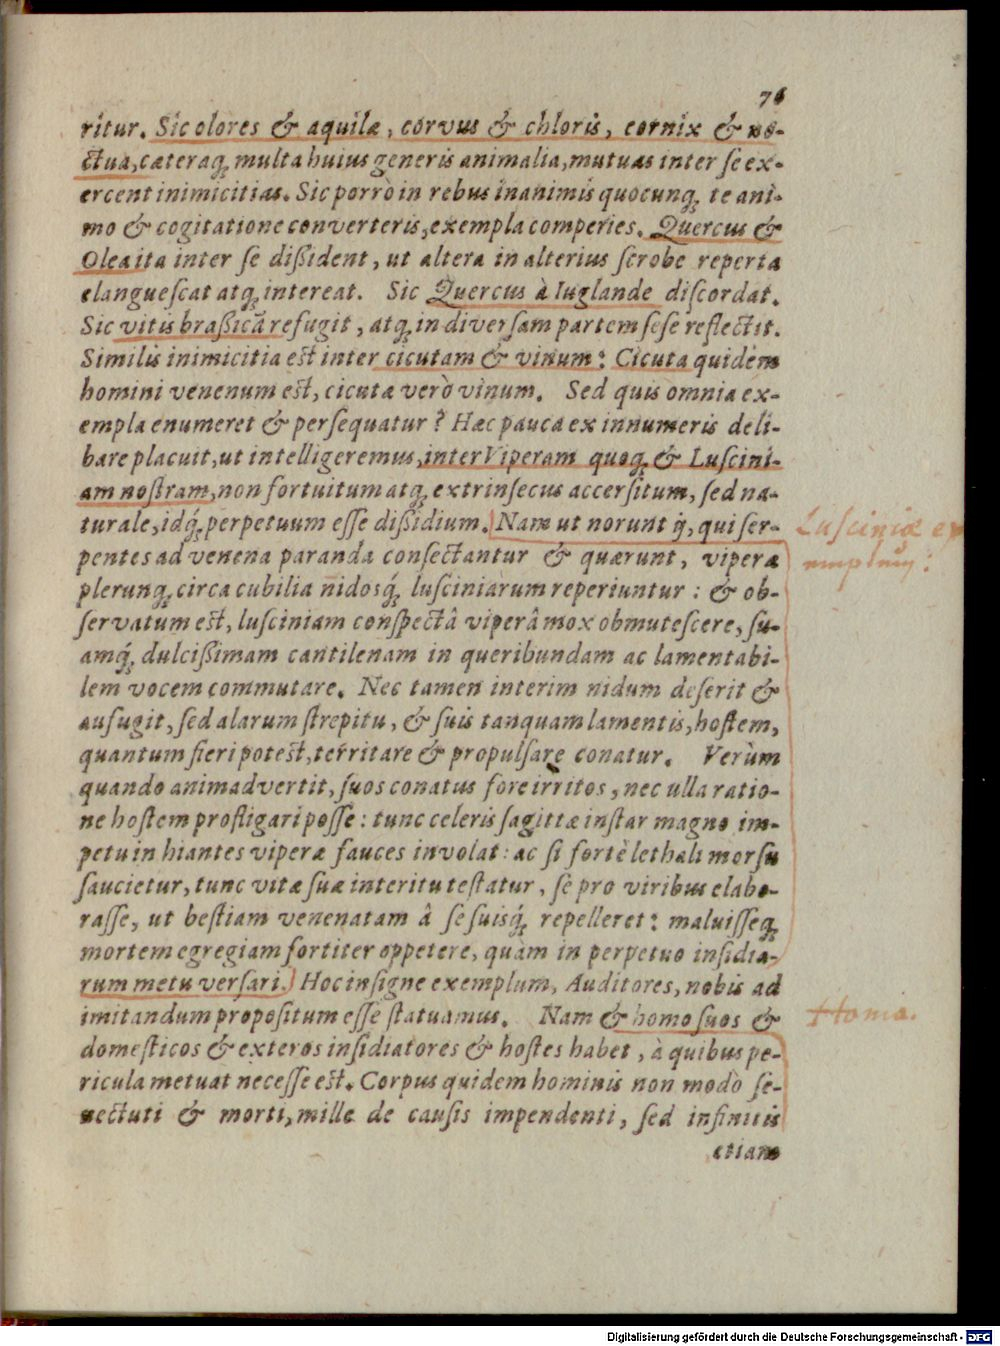 76
ritur. Sic olores & aquilæ, corvus & chloris, cornix & no-
ctua, cæteraq; multa huius generis animalia, mutuas inter se ex-
ercent inimicitias. Sic porrò in rebus inanimis quocunq; te ani-
mo & cogitatione converteris, exempla comperies. Quercus &
Olea ita inter se dißident, ut altera in alterius scrobe reperta
elanguescat atq; intereat. Sic Quercus à Iuglande discordat.
Sic vitis braßicã refugit, atq; in diversam partem sese reflectit.
Similis inimicitia est inter cicutam & vinum: Cicuta quidem
homini venenum est, cicutæ verò vinum. Sed quis omnia ex-
empla enumeret & persequatur? Hæc pauca ex innumeris deli-
bare placuit, ut intelligeremus, inter Viperam quoq; & Luscini-
am nostram, non fortuitum atq; extrinsecus accersitum, sed na-
turale, idq́; perpetuum esse dißidium. Nam ut norunt ij, qui ser-
pentes ad venena paranda consectantur & quærunt, viperæ
plerunq; circa cubilia nidosq́; lusciniarum reperiuntur: & ob-
servatum est, lusciniam conspectâ viperâ mox obmutescere, su-
amq́; dulcißimam cantilenam in queribundam ac lamentabi-
lem vocem commutare. Nec tamen interim nidum deserit &
aufugit, sed alarum strepitu, & suis tanquam lamentis, hostem,
quantum fieri potest, territare & propulsare conatur. Verùm
quando animadvertit, suos conatus fore irritos, nec ulla ratio-
ne hostem profligari posse: tunc celeris sagittæ instar magno im-
petu in hiantes viperæ fauces involat: ac si fortè lethali morsu
saucietur, tunc vitæ suæ interitu testatur, se pro viribus elabo-
rasse, ut bestiam venenatam â se suisq́; repelleret: maluisseq;
mortem egregiam fortiter oppetere, quàm in perpetuo insidia-
rum metu versari. Hoc insigne exemplum, Auditores, nobis ad
imitandum propositum esse statuamus. Nam & homo suos &
domesticos & exteros insidiatores & hostes habet, à quibus pe-
ricula metuat necesse est. Corpus quidem hominis non modò se-
nectuti & morti, mille de causis impendenti, sed infinitis
etiam
Lusciniæ ex
emplum:
Homo.
Digitalisierung gefördert durch die Deutsche Forschungsgemeinschaft - DFG